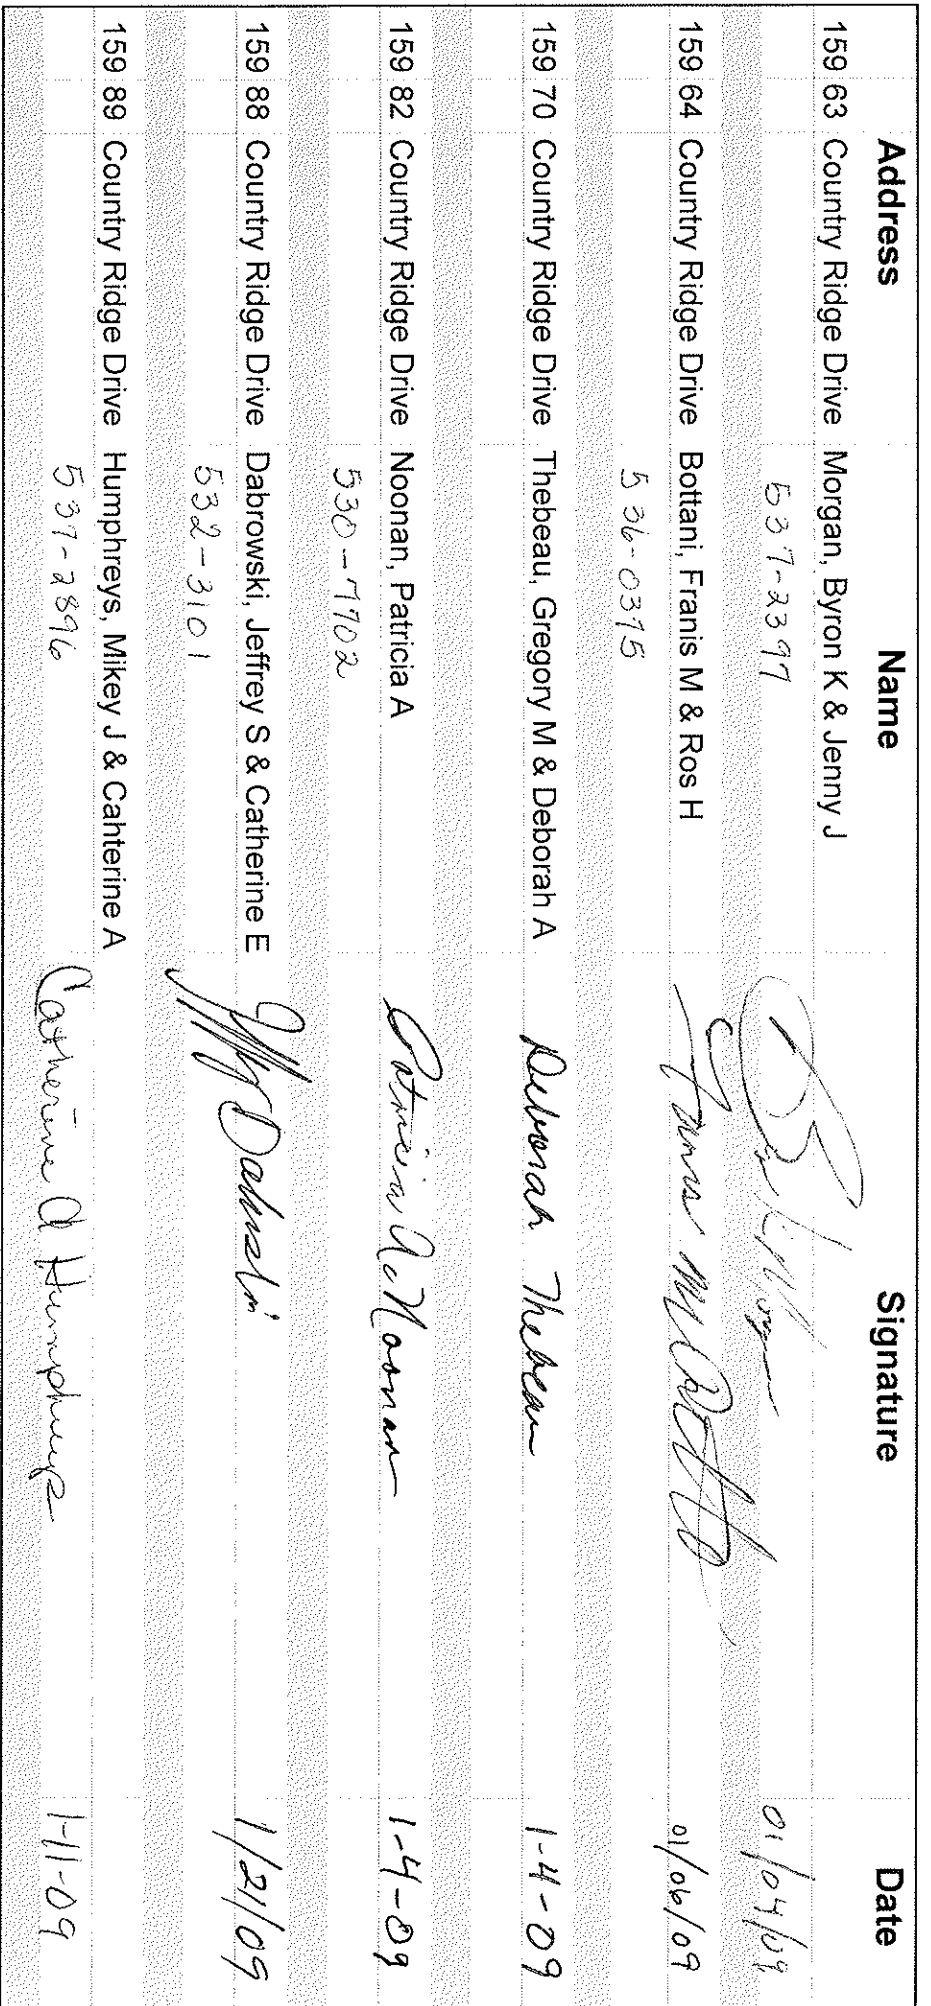 Address Name Signature Date
159 63 Country Ridge Drive Morgan, Byron K & Jenny J
537-2397 01/04/09
159 64 Country Ridge Drive Bottani, Franis M & Ros H 01/06/09
536-0375
159 70 Country Ridge Drive Thebeau, Gregory M & Deborah A Deborah Thebeau 1-4-09
159 82 Country Ridge Drive Noonan, Patricia A Patricia A. Noonan 1-4-09
530-7702
159 88 Country Ridge Drive Dabrowski, Jeffrey S & Catherine E 1/21/09
532-3101
159 89 Country Ridge Drive Humphreys, Mikey J & Cahterine A
537-2896 Catherine A Humphreys 1-11-09